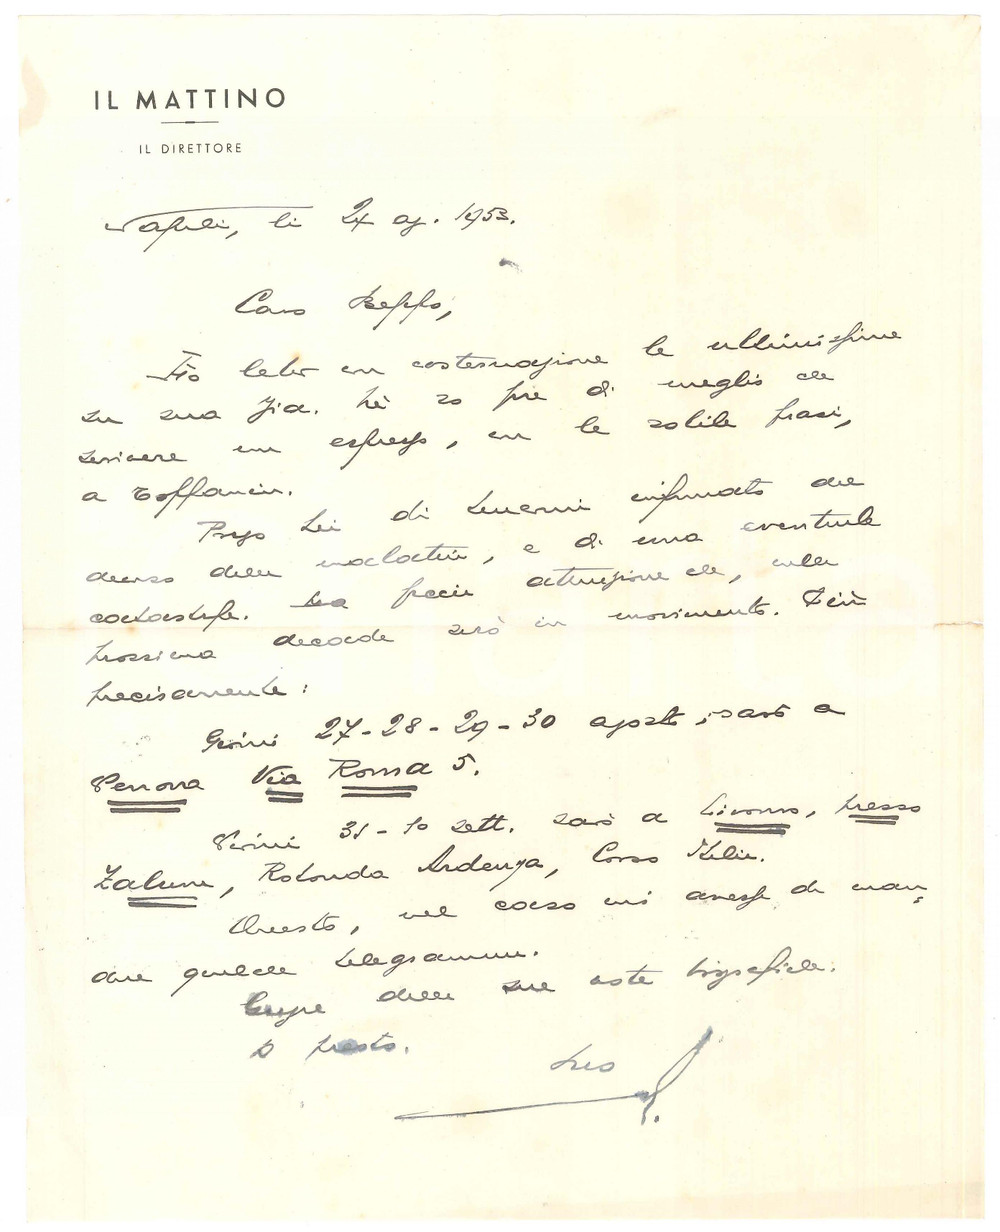 IL MATTINO
IL DIRETTORE
Napoli, li 24 ag. 1953.
Caro Beppe,
Ho letto con costernazione le ultimissime
su sua zia. Nè so fare di meglio che
scrivere un espresso, con le solite frasi,
a Toffanin.
Prego Lei di tenermi informato del
decorso della malattia, e di una eventuale
catastrofe. Ma faccia attenzione che, nella
prossima decade sarò in movimento. Più
precisamente:
Giorni 27-28-29-30 agosto, sarò a
Verona Via Roma 5.
Giorni 31-10 sett. sarò a Livorno, presso
Rotonda Ardenza, Corso Italia.
Questo, nel caso mi avesse da man
dare qualche telegramma.
delle sue note biografiche.
A presto.
Suo